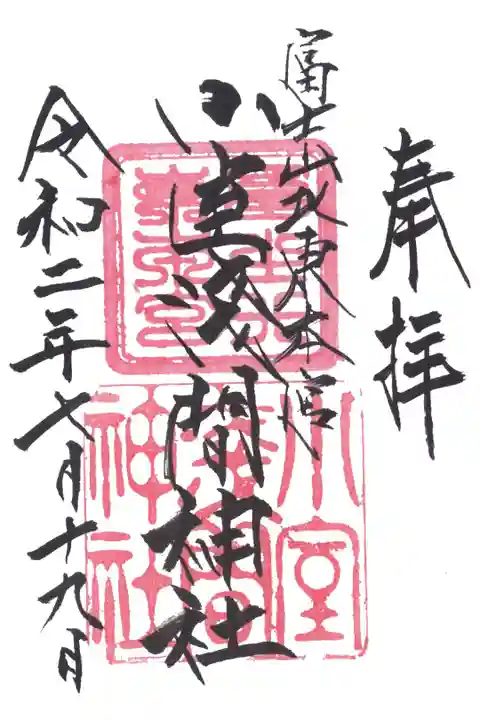 奉拝
冨士山北東本宮
小室浅間神社
令和二年七月十九日
小室
神社